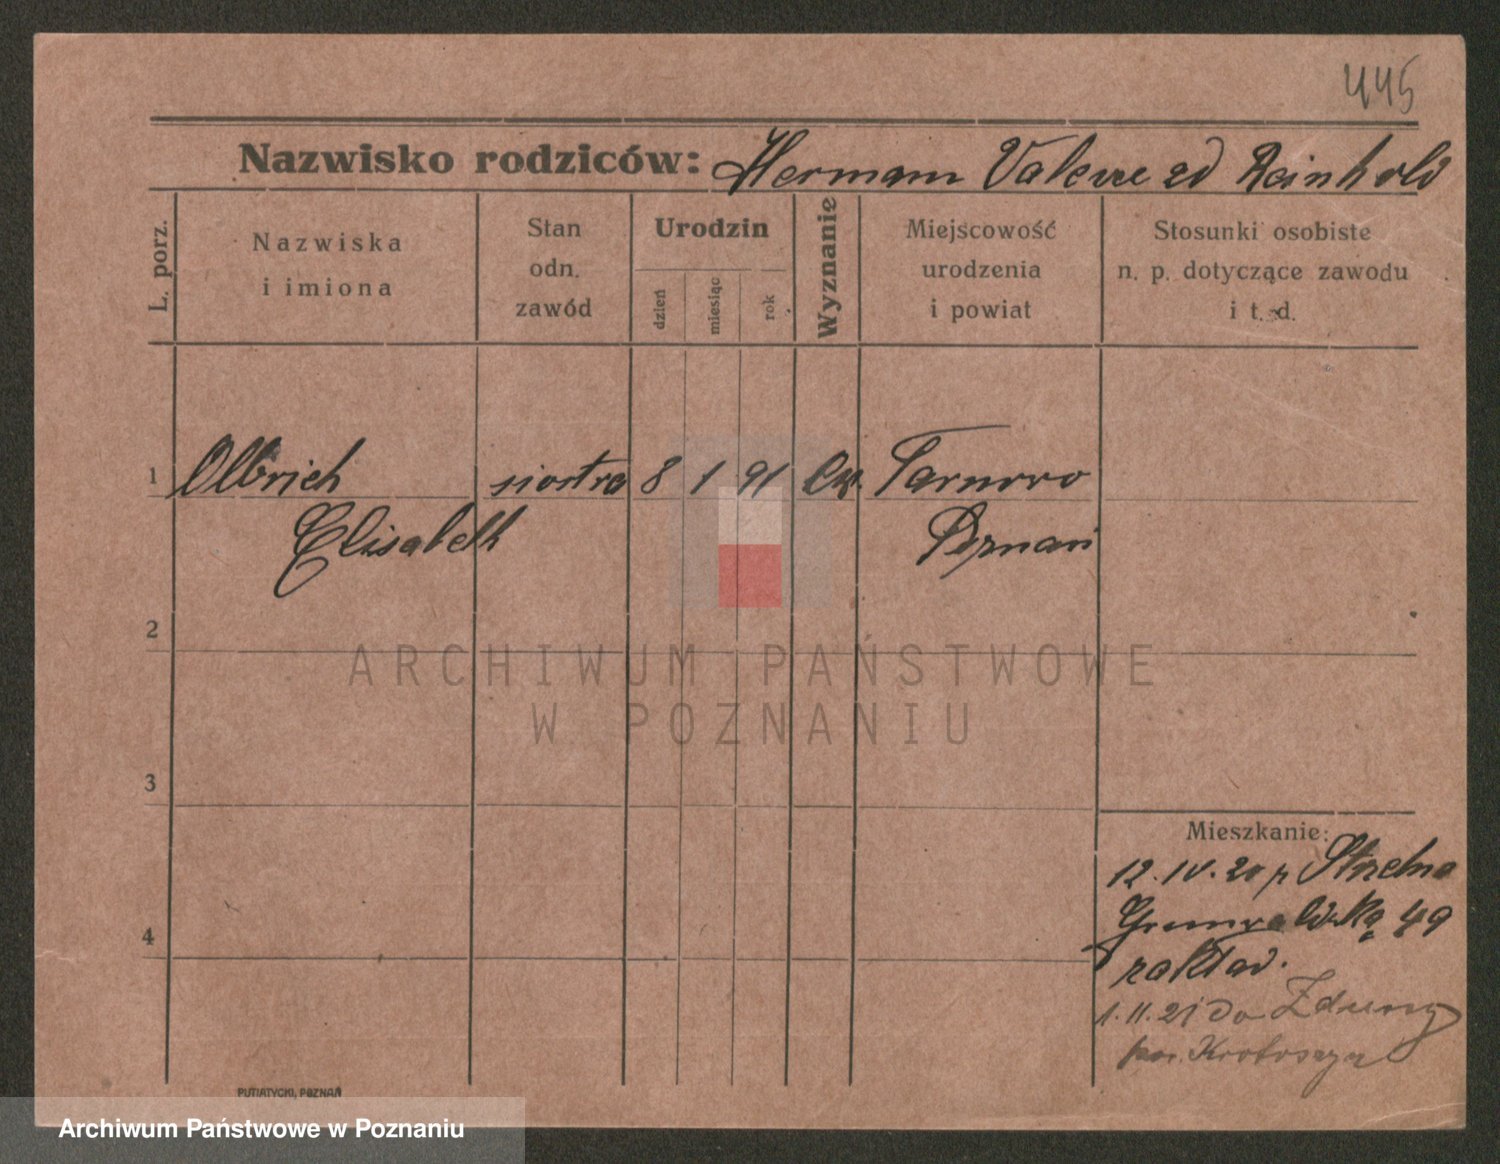 445
Nazwisko rodziców: Hermann Valerie zd Reinhold
L. porz.
Nazwiska
i imiona
Stan
odn.
zawód
Urodzin
dzień
miesiąc
rok
Wyznanie
Miejscowość
urodzenia
i powiat
Stosunki osobiste
n. p. dotyczące zawodu
i t. d.
1 Olbrich siostra 8 1 91 Ew. Tarnowo
Elisabeth Poznań
2
ARCHIWUM PAŃSTWOWE
W POZNANIU
3
Mieszkanie:
12.IV.20 p Strzelno
Grunwaldzka 49
4
zakład.
1.II.21 do Zduny
pow. Krotoszyn
PUTIATYCKI, POZNAŃ
Archiwum Państwowe w Poznaniu